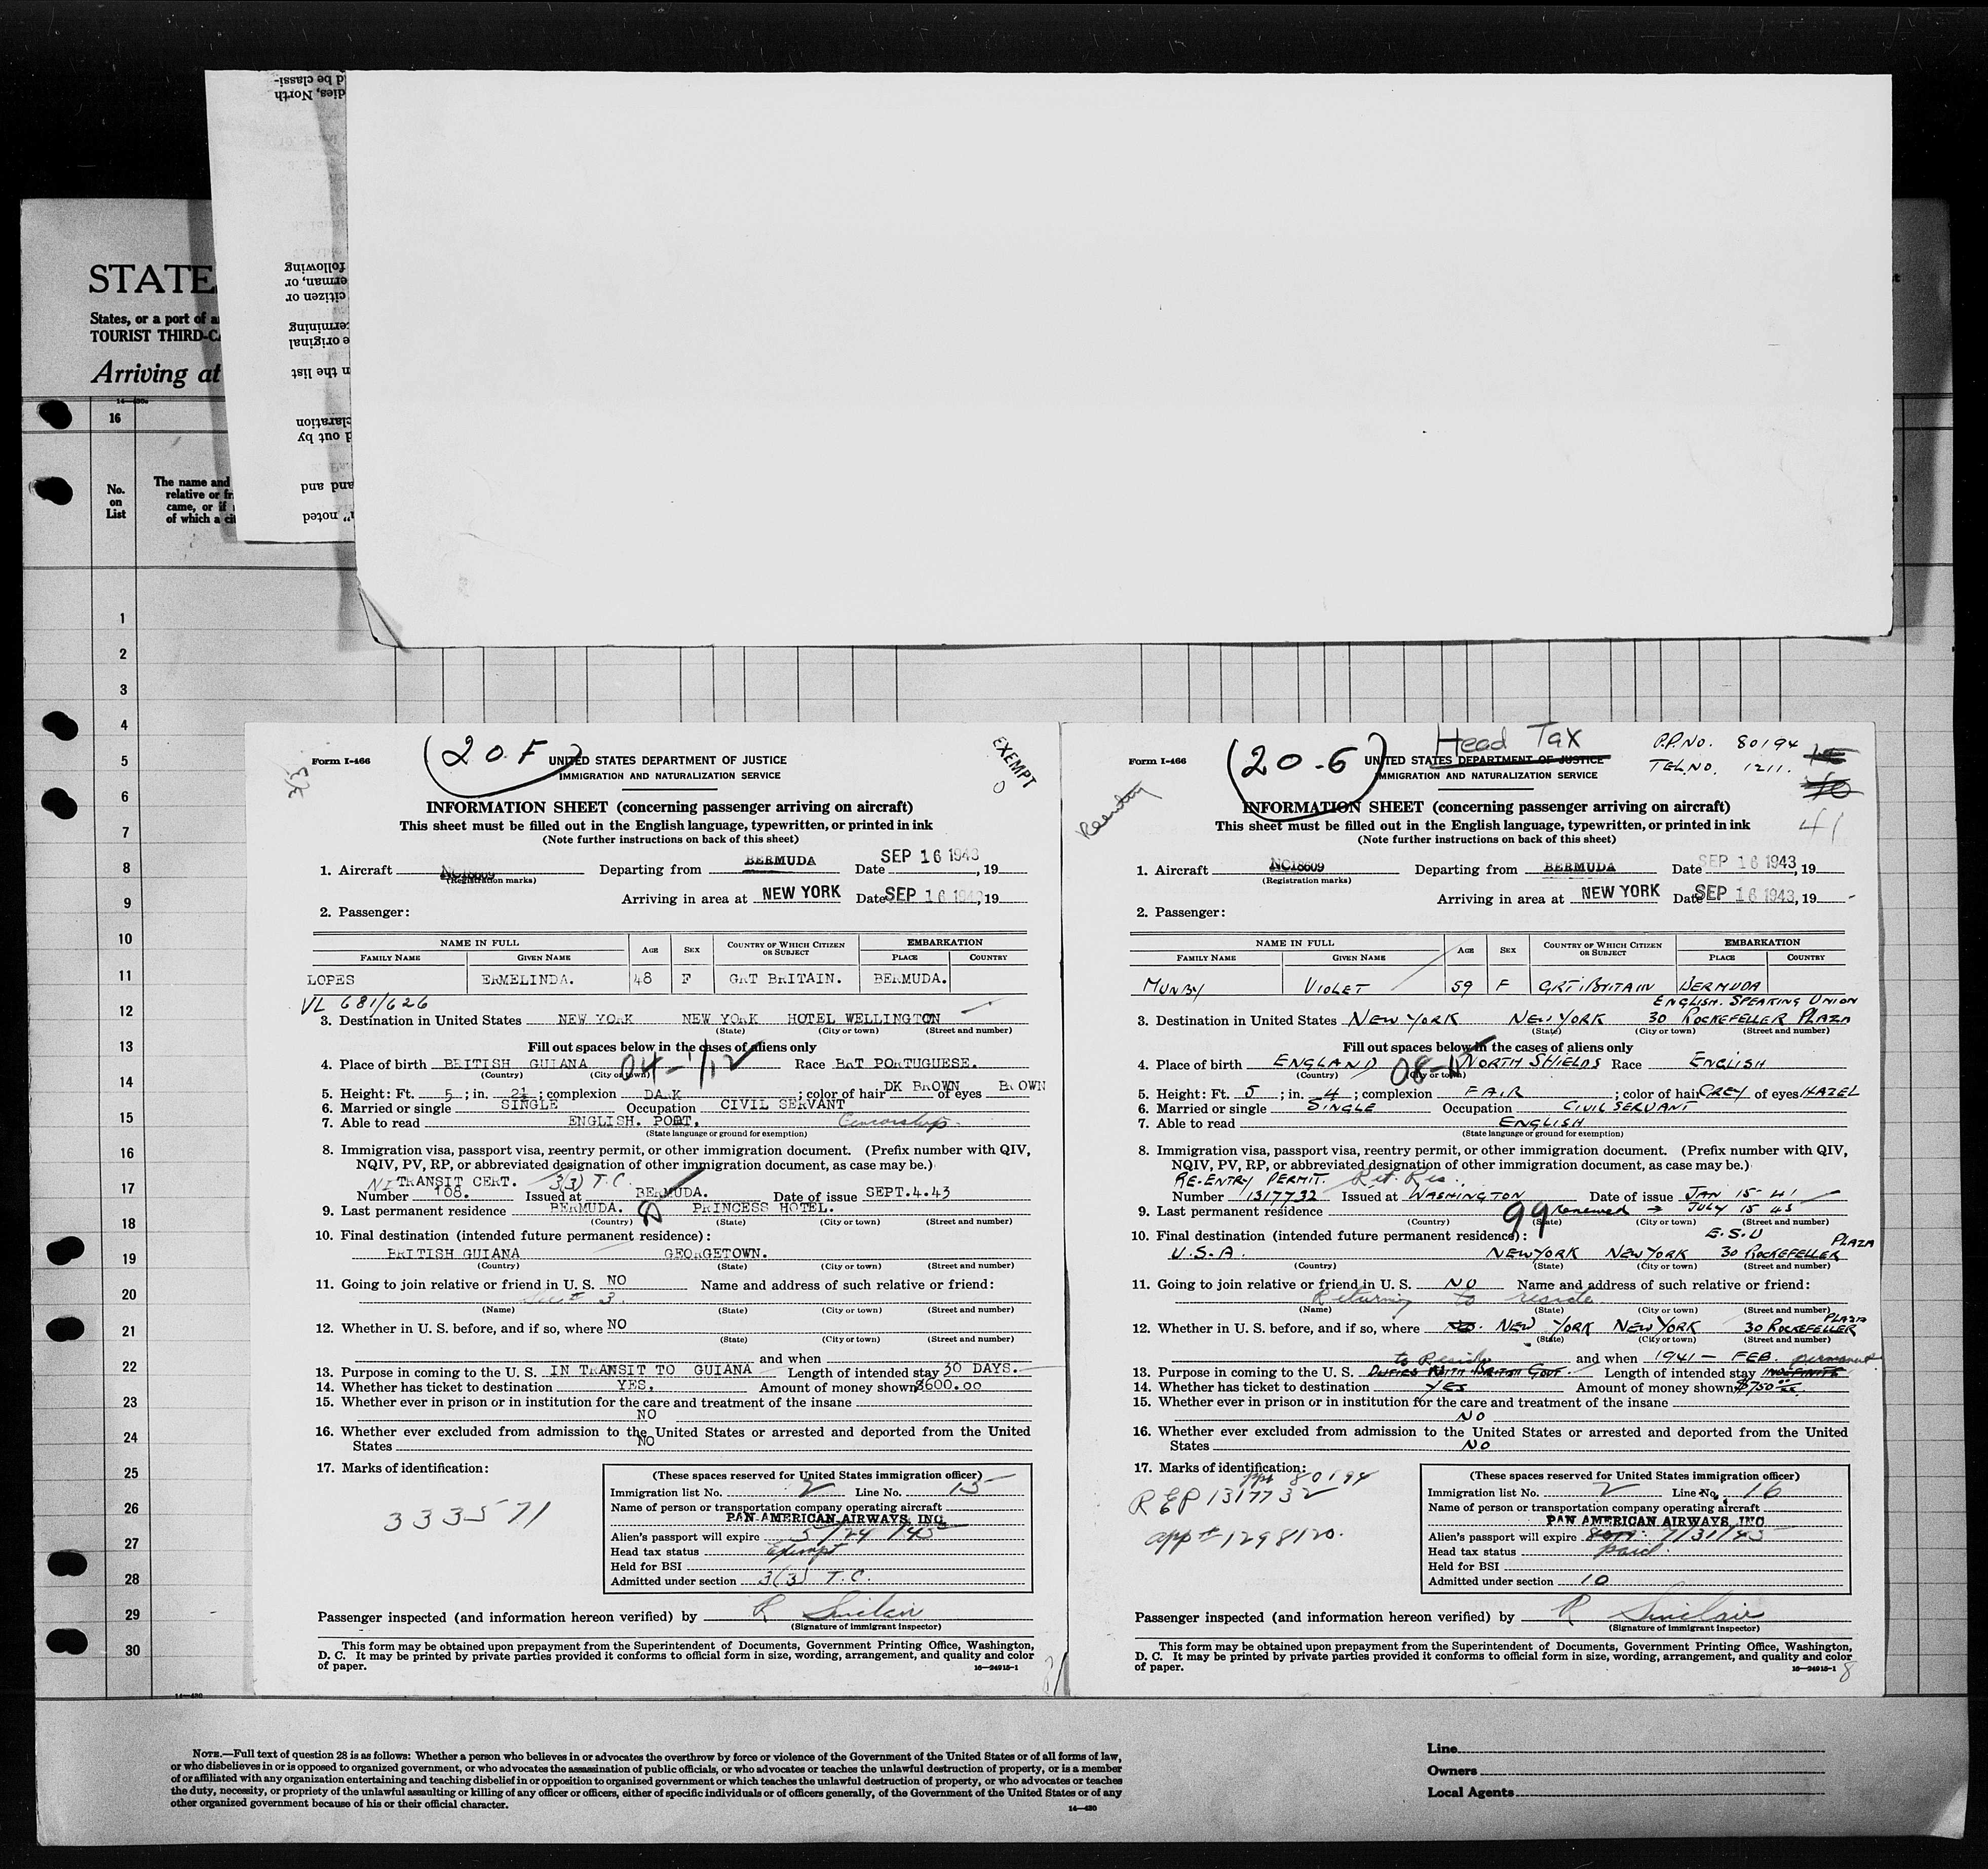 d be classi-
dies, North
following
erman, or
citizen or
ermining
e original
n the list
claration
d out by
and and
" noted
STATE
States, or a port of a
TOURIST THIRD-CA
Arriving at
16
No.
on
List
The name and
relative or fr
came, or if
of which a cit
1
2
3
4
5
6
7
8
9
10
11
12
13
14
15
16
17
18
19
20
21
22
23
24
25
26
27
28
29
30
Form I-466
(20.F)
UNITED STATES DEPARTMENT OF JUSTICE
IMMIGRATION AND NATURALIZATION SERVICE
EXEMPT
0
INFORMATION SHEET (concerning passenger arriving on aircraft)
This sheet must be filled out in the English language, typewritten, or printed in ink
(Note further instructions on back of this sheet)
1. Aircraft NC18609 Departing from BERMUDA Date SEP 16 1943, 19
(Registration marks)
Arriving in area at NEW YORK Date SEP 16 1943, 19
2. Passenger:
NAME IN FULL AGE SEX COUNTRY OF WHICH CITIZEN OR SUBJECT EMBARKATION
FAMILY NAME GIVEN NAME PLACE COUNTRY
LOPES ERMELINDA. 48 F GRT BRITAIN. BERMUDA.
VL 681/626
3. Destination in United States NEW YORK NEW YORK HOTEL WELLINGTON
(State) (City or town) (Street and number)
Fill out spaces below in the cases of aliens only
4. Place of birth BRITISH GUIANA 04-1/12 Race BRT PORTUGUESE.
(Country) (City or town)
5. Height: Ft. 5; in. 2½; complexion DARK; color of hair DK BROWN of eyes BROWN
6. Married or single SINGLE Occupation CIVIL SERVANT
7. Able to read ENGLISH. PORT. Censorship.
(State language or ground for exemption)
8. Immigration visa, passport visa, reentry permit, or other immigration document. (Prefix number with QIV,
NQIV, PV, RP, or abbreviated designation of other immigration document, as case may be.)
NI TRANSIT CERT. 3(3) T.C.
Number 108. Issued at BERMUDA. Date of issue SEPT.4.43
9. Last permanent residence BERMUDA. PRINCESS HOTEL.
(Country) (State) (City or town) (Street and number)
10. Final destination (intended future permanent residence):
BRITISH GUIANA GEORGETOWN.
(Country) (State) (City or town) (Street and number)
11. Going to join relative or friend in U. S. NO Name and address of such relative or friend:
See # 3
(Name) (State) (City or town) (Street and number)
12. Whether in U. S. before, and if so, where NO
(State) (City or town) (Street and number)
and when
13. Purpose in coming to the U. S. IN TRANSIT TO GUIANA Length of intended stay 30 DAYS.
14. Whether has ticket to destination YES. Amount of money shown $600.00
15. Whether ever in prison or in institution for the care and treatment of the insane
NO
16. Whether ever excluded from admission to the United States or arrested and deported from the United
States NO
17. Marks of identification:
333571
(These spaces reserved for United States immigration officer)
Immigration list No. 2 Line No. 15
Name of person or transportation company operating aircraft
PAN AMERICAN AIRWAYS, INC
Alien's passport will expire 5/24/45
Head tax status Exempt
Held for BSI
Admitted under section 3(3) T.C.
Passenger inspected (and information hereon verified) by R Sinclair
(Signature of immigrant inspector)
This form may be obtained upon prepayment from the Superintendent of Documents, Government Printing Office, Washington,
D. C. It may be printed by private parties provided it conforms to official form in size, wording, arrangement, and quality and color
of paper.
16—24915-1
Form I-466
(20-G)
Head Tax
P.P.NO. 80194
TEL.NO. 1211.
UNITED STATES DEPARTMENT OF JUSTICE
IMMIGRATION AND NATURALIZATION SERVICE
Reentry
41
INFORMATION SHEET (concerning passenger arriving on aircraft)
This sheet must be filled out in the English language, typewritten, or printed in ink
(Note further instructions on back of this sheet)
1. Aircraft NC18609 Departing from BERMUDA Date SEP 16 1943, 19
(Registration marks)
Arriving in area at NEW YORK Date SEP 16 1943, 19
2. Passenger:
NAME IN FULL AGE SEX COUNTRY OF WHICH CITIZEN OR SUBJECT EMBARKATION
FAMILY NAME GIVEN NAME PLACE COUNTRY
MUNBY VIOLET 59 F GRT. BRITAIN BERMUDA
ENGLISH. SPEAKING UNION
3. Destination in United States NEW YORK NEW YORK 30 ROCKEFELLER PLAZA
(State) (City or town) (Street and number)
Fill out spaces below in the cases of aliens only
4. Place of birth ENGLAND NORTH SHIELDS Race ENGLISH
(Country) (City or town)
5. Height: Ft. 5; in. 4; complexion FAIR; color of hair GREY of eyes HAZEL
6. Married or single SINGLE Occupation CIVIL SERVANT
7. Able to read ENGLISH
(State language or ground for exemption)
8. Immigration visa, passport visa, reentry permit, or other immigration document. (Prefix number with QIV,
NQIV, PV, RP, or abbreviated designation of other immigration document, as case may be.)
RE-ENTRY PERMIT. Ret. Res.
Number 1317732 Issued at WASHINGTON Date of issue JAN 15-41
9. Last permanent residence 99 Renewed → JULY 15 43
(Country) (State) (City or town) (Street and number)
10. Final destination (intended future permanent residence): E.S.U
U.S.A. NEW YORK NEW YORK 30 ROCKEFELLER PLAZA
(Country) (State) (City or town) (Street and number)
11. Going to join relative or friend in U. S. NO Name and address of such relative or friend:
Returning to reside
(Name) (State) (City or town) (Street and number)
12. Whether in U. S. before, and if so, where NEW YORK NEW YORK 30 ROCKEFELLER PLAZA
(State) (City or town) (Street and number)
to Reside and when 1941 - FEB. permanent
13. Purpose in coming to the U. S. DUTIES WITH BRITISH GOVT. Length of intended stay INDEFINITE
14. Whether has ticket to destination YES Amount of money shown $750
15. Whether ever in prison or in institution for the care and treatment of the insane
NO
16. Whether ever excluded from admission to the United States or arrested and deported from the United
States NO
17. Marks of identification:
ppt 80194
REP 1317732
app # 1298120.
(These spaces reserved for United States immigration officer)
Immigration list No. 2 Line No. 16
Name of person or transportation company operating aircraft
PAN AMERICAN AIRWAYS, INC
Alien's passport will expire 7/31/45
Head tax status paid.
Held for BSI
Admitted under section 10
Passenger inspected (and information hereon verified) by R Sinclair
(Signature of immigrant inspector)
This form may be obtained upon prepayment from the Superintendent of Documents, Government Printing Office, Washington,
D. C. It may be printed by private parties provided it conforms to official form in size, wording, arrangement, and quality and color
of paper.
16—24915-1
8
14—430
NOTE.—Full text of question 28 is as follows: Whether a person who believes in or advocates the overthrow by force or violence of the Government of the United States or of all forms of law,
or who disbelieves in or is opposed to organized government, or who advocates the assassination of public officials, or who advocates or teaches the unlawful destruction of property, or is a member
of or affiliated with any organization entertaining and teaching disbelief in or opposition to organized government or which teaches the unlawful destruction of property, or who advocates or teaches
the duty, necessity, or propriety of the unlawful assaulting or killing of any officer or officers, either of specific individuals or of officers generally, of the Government of the United States or of any
other organized government because of his or their official character.
14—430
Line
Owners
Local Agents